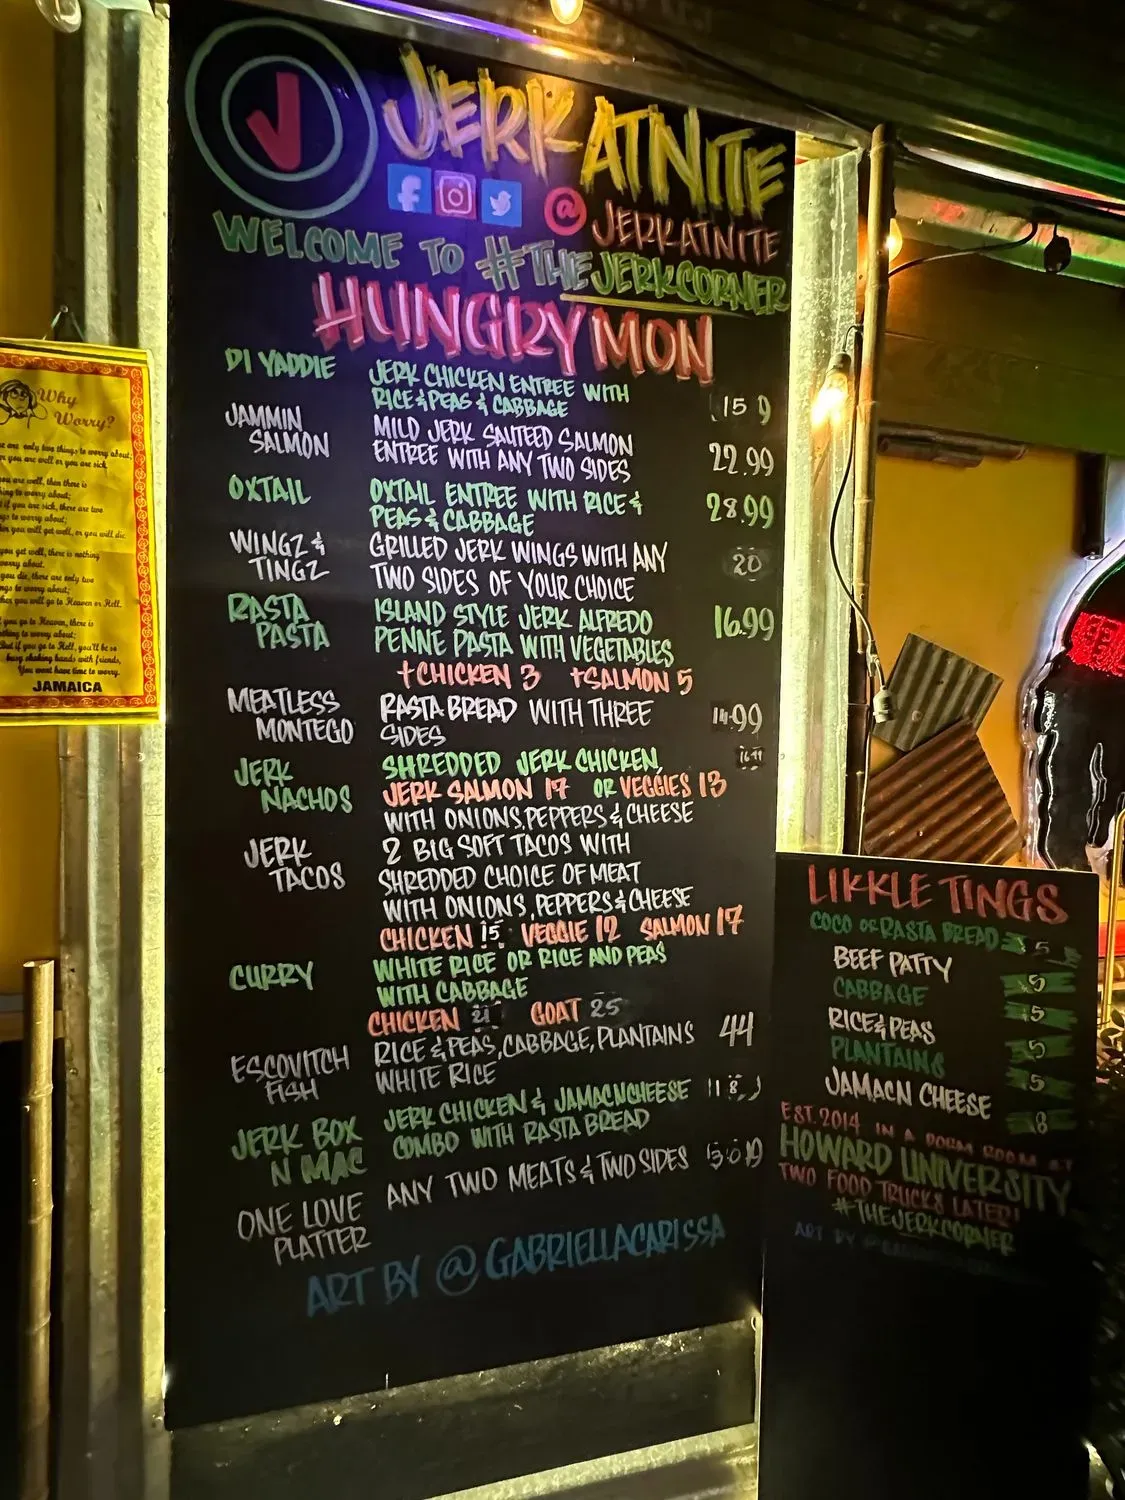 JERKATNITE
@JERKATNITE
WELCOME TO #THEJERKCORNER
HUNGRY MON
DI YADDIE JERK CHICKEN ENTREE WITH
RICE & PEAS & CABBAGE 15 9
JAMMIN MILD JERK SAUTEED SALMON
SALMON ENTREE WITH ANY TWO SIDES 22.99
OXTAIL OXTAIL ENTREE WITH RICE & 28.99
PEAS & CABBAGE
WINGZ & GRILLED JERK WINGS WITH ANY 20
TINGZ TWO SIDES OF YOUR CHOICE
RASTA ISLAND STYLE JERK ALFREDO 16.99
PASTA PENNE PASTA WITH VEGETABLES
+CHICKEN 3 +SALMON 5
MEATLESS RASTA BREAD WITH THREE 14.99
MONTEGO SIDES
JERK SHREDDED JERK CHICKEN, 16.99
NACHOS JERK SALMON 17 OR VEGGIES 13
WITH ONIONS, PEPPERS & CHEESE
JERK 2 BIG SOFT TACOS WITH
TACOS SHREDDED CHOICE OF MEAT
WITH ONIONS, PEPPERS & CHEESE
CHICKEN 15 VEGGIE 12 SALMON 17
CURRY WHITE RICE OR RICE AND PEAS
WITH CABBAGE
CHICKEN 21 GOAT 25
ESCOVITCH RICE & PEAS, CABBAGE, PLANTAINS 44
FISH WHITE RICE
JERK BOX JERK CHICKEN & JAMACNCHEESE 18
N MAC COMBO WITH RASTA BREAD
ONE LOVE ANY TWO MEATS & TWO SIDES
PLATTER
ART BY @GABRIELLACARISSA
LIKKLE TINGS
COCO OR RASTA BREAD 5
BEEF PATTY 5
CABBAGE 5
RICE & PEAS 5
PLANTAINS 5
JAMACN CHEESE 8
EST. 2014 IN A DORM ROOM AT
HOWARD UNIVERSITY
TWO FOOD TRUCKS LATER!
#THEJERKCORNER
ART BY
Why
Worry?
are only two things to worry about;
you are well or you are sick.
you are well, then there is
thing to worry about;
if you are sick, there are two
things to worry about;
you will get well, or you will die.
you get well, there is nothing
worry about.
you die, there are only two
things to worry about;
you will go to Heaven or Hell.
you go to Heaven, there is
nothing to worry about;
But if you go to Hell, you'll be so
busy shaking hands with friends,
You wont have time to worry.
JAMAICA